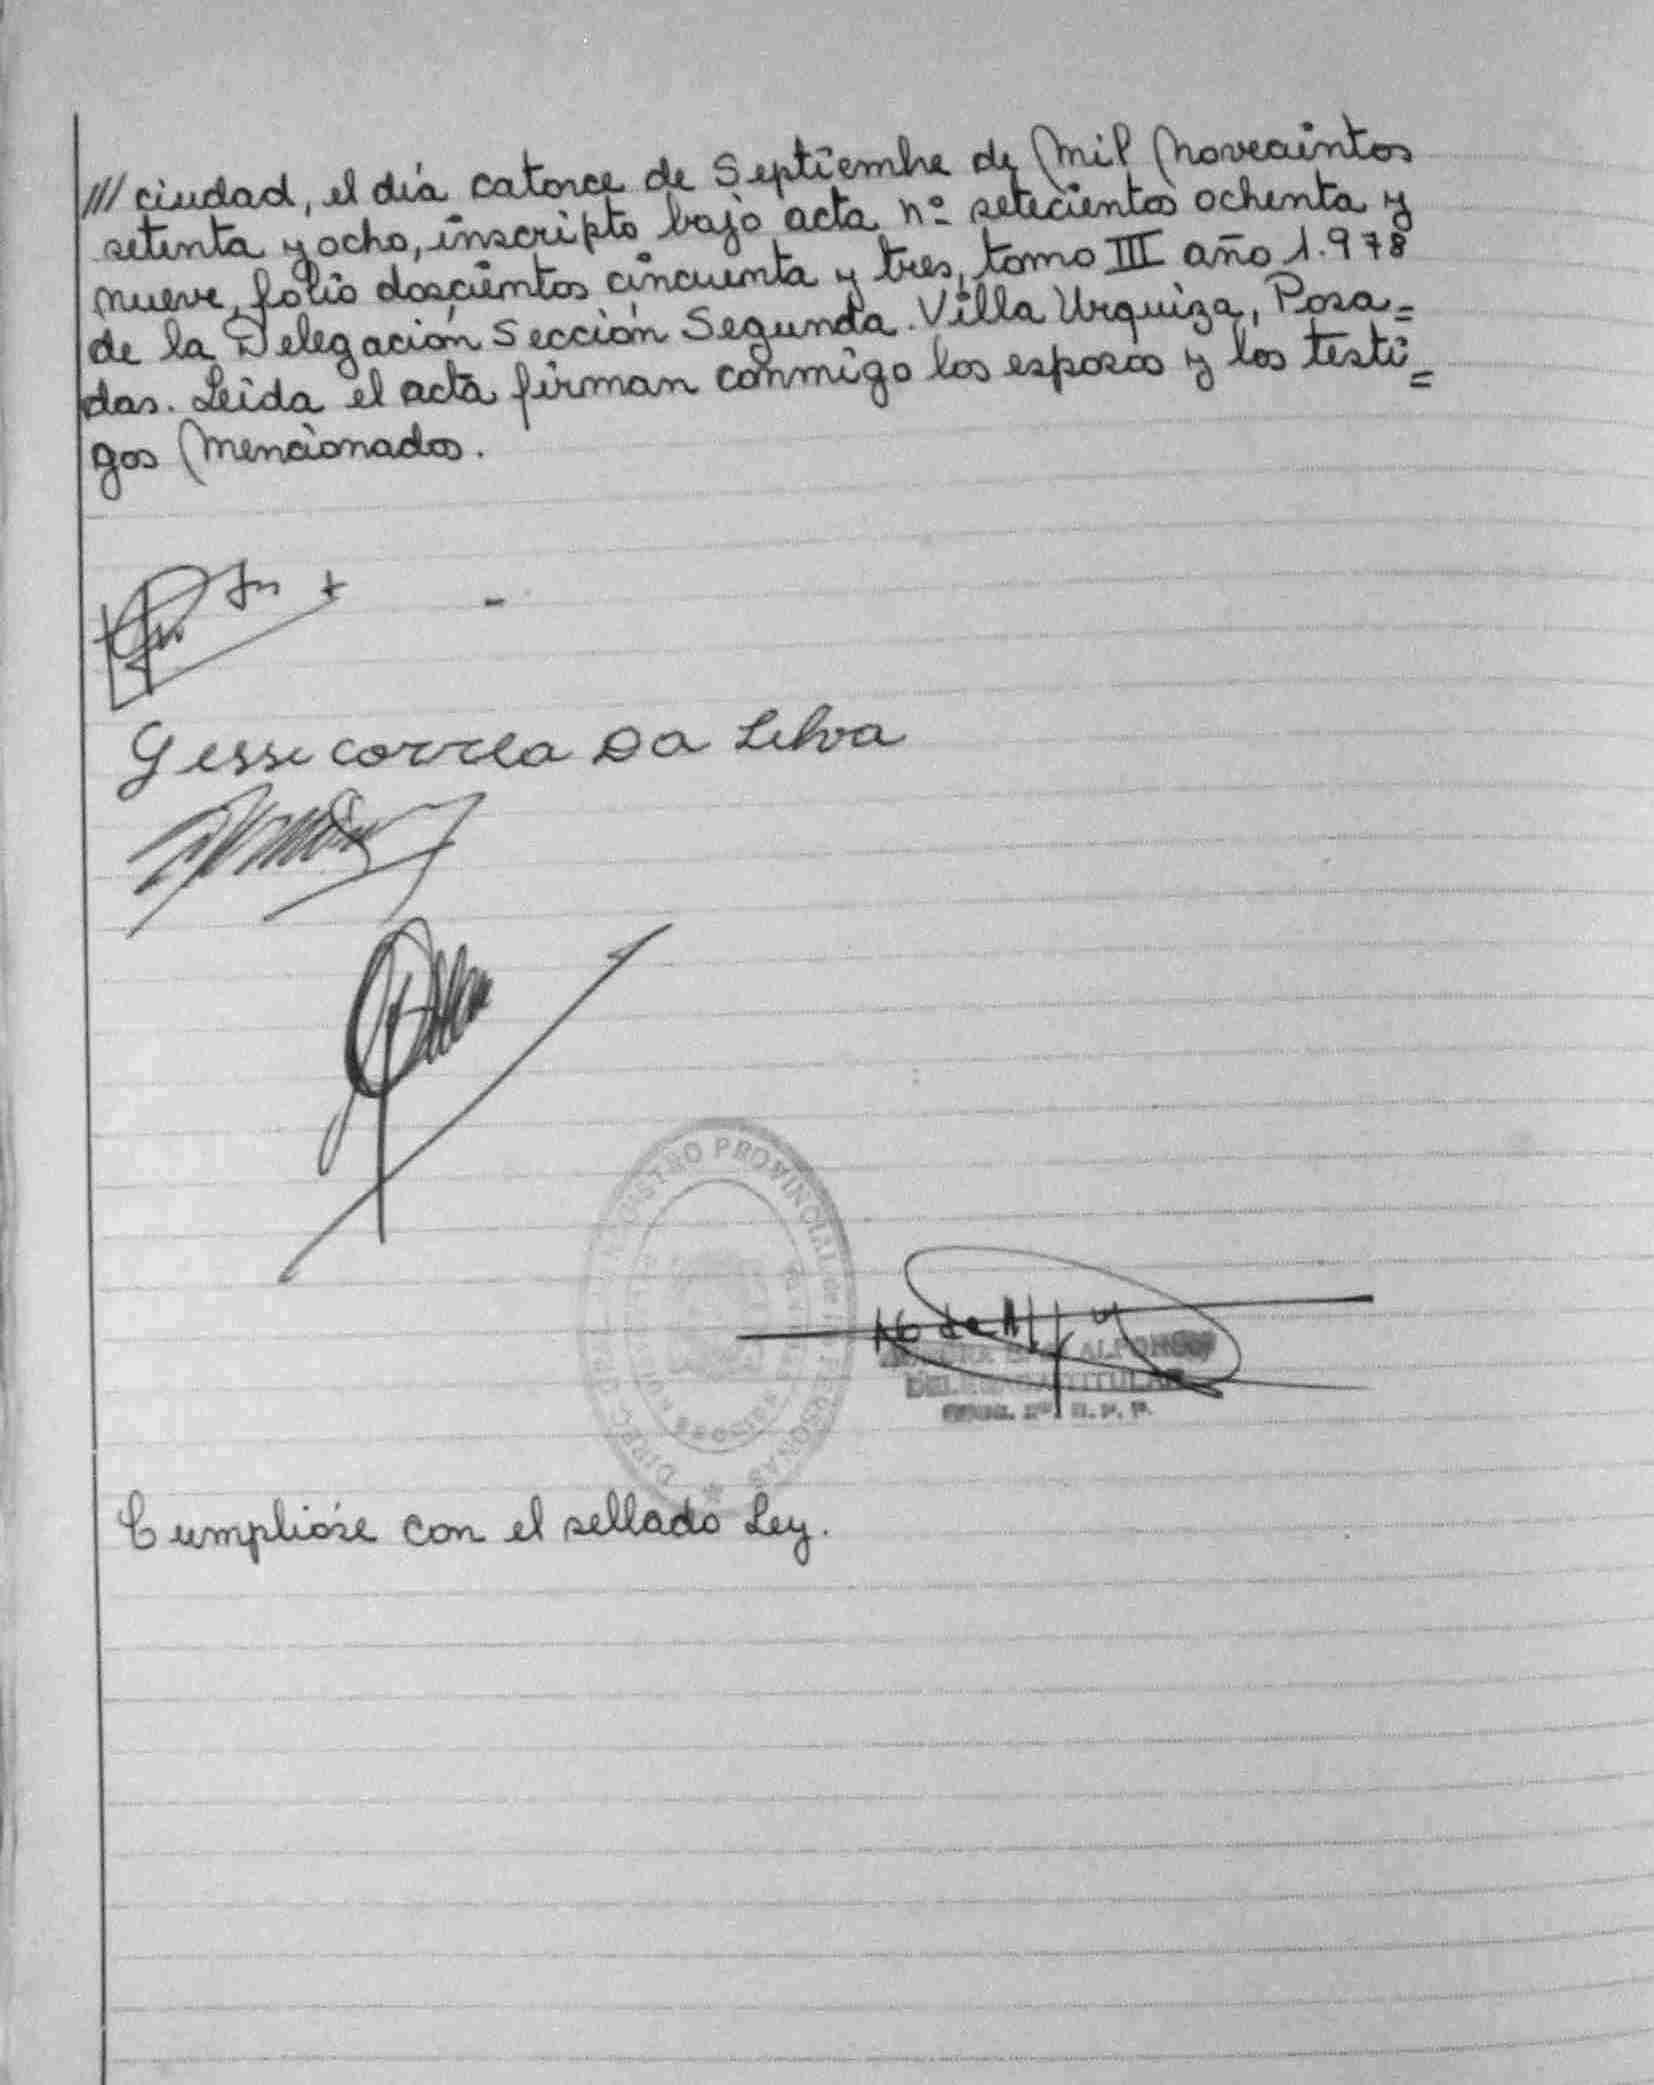 /// ciudad, el día catorce de Septiembre de Mil Novecientos
setenta y ocho, inscripto bajo acta nº setecientos ochenta y
nueve, folio doscientos cincuenta y tres, tomo III año 1.978
de la Delegación Sección Segunda. Villa Urquiza, Posa=
das. Leida el acta firman conmigo los esposos y los testi=
gos Mencionados.
Gessi correa Da Silva
DIREC. GRAL. REGISTRO PROVINCIAL de las PERSONAS
MISIONES
ALFONSO
DELEGADA TITULAR
R. P. P.
Cumplióse con el sellado Ley.